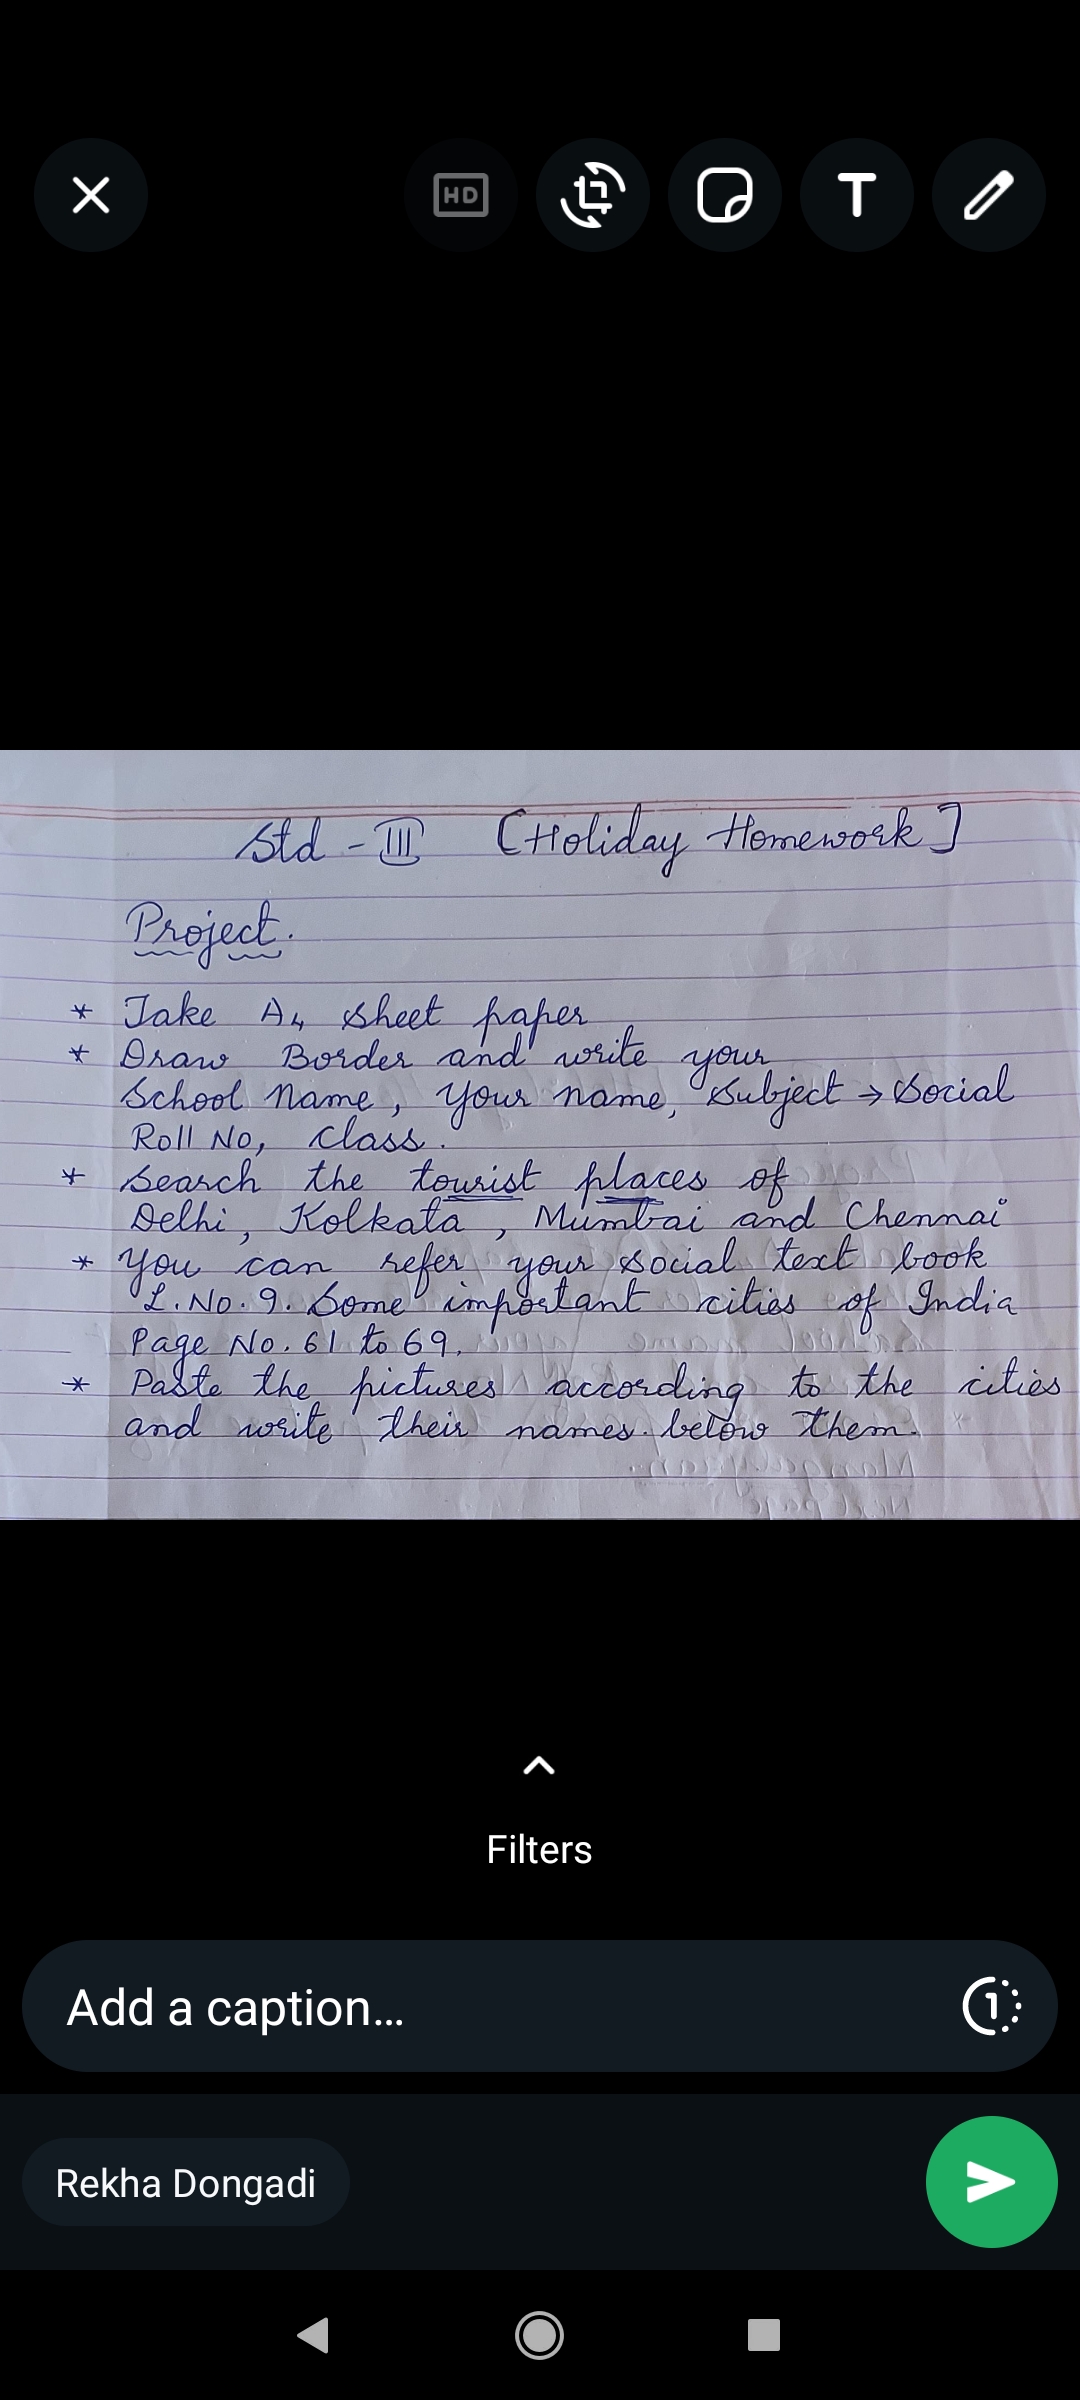 HD
T
Std - III [Holiday Homework]
Project.
* Take A4 sheet paper
* Draw Border and write your
School Name, Your name, Subject → Social
Roll No, Class.
* Search the tourist places of
Delhi, Kolkata, Mumbai and Chennai
* You can refer your social text book
L.No.9. Some important cities of India
Page No. 61 to 69.
* Paste the pictures according to the cities
and write their names below them.
Filters
Add a caption...
1
Rekha Dongadi